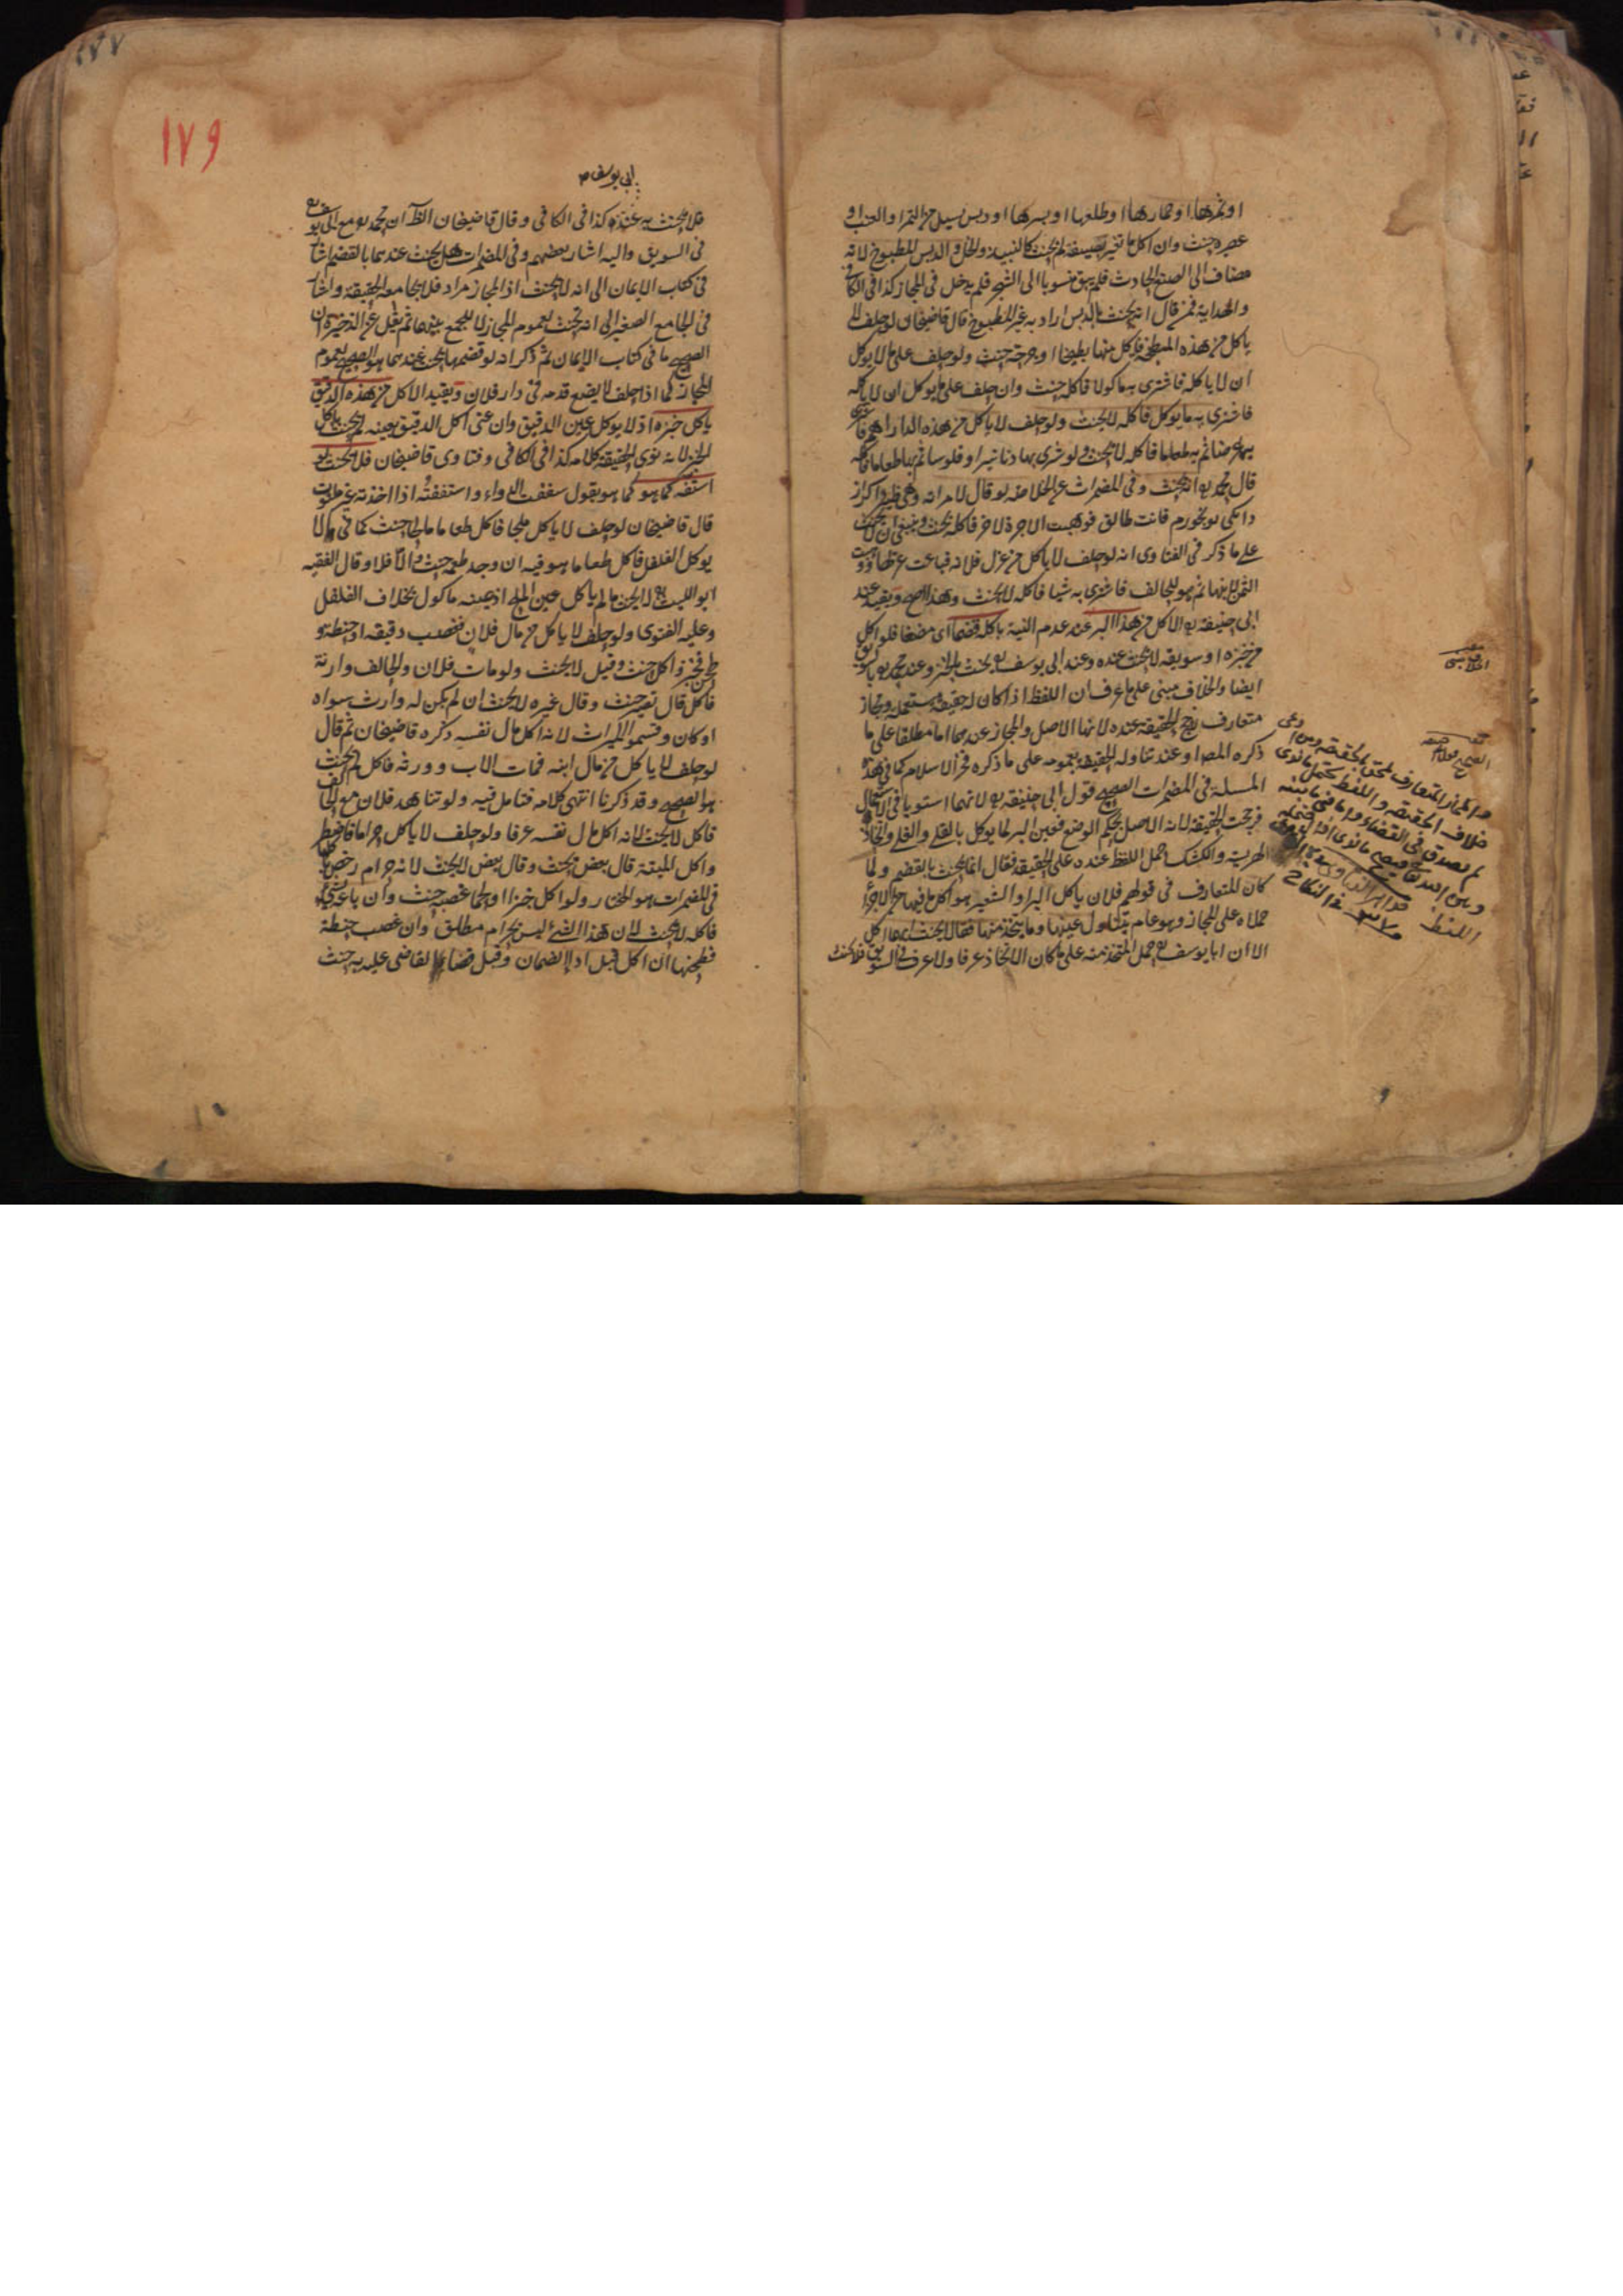 او تمرها او جمارها او طلعها او بسرها او دبس يسيل من التمر او العنب او
عصيره حنث وان اكل ما تغير بصنعة لم يحنث كالنبيذ والخل والدبس المطبوخ لانه
مضاف الى الصنع الحادث فلم يبق منسوبا الى الشجر فلم يدخل في المجاز كذا في الكافي
والهداية فمن قال انه يحنث بالدبس اراد به غير المطبوخ قال قاضيخان لو حلف لا
ياكل من هذه المبطخة فاكل منها بطيخا او حنث ولو حلف على ما لا يوكل
ان لا ياكله فاشترى به ماكولا فاكله حنث وان حلف على ما يوكل ان لا ياكله
فاشترى به ما يوكل فاكله لا يحنث ولو حلف لا ياكل من هذه الدراهم فاشترى
بها عرضا ثم به طعاما فاكله لا يحنث ولو شرى بها دنانير او فلوسا ثم بها طعاما فاكله
قال محمد انه يحنث وفي المضمرات عن الخلاصة لو قال لامراته
فانت طالق فوهبت الاجرة لاخر فاكله يحنث وينبغي ان لا يحنث
على ما ذكر في الفتاوى انه لو حلف لا ياكل من غزل فلانة فباعت غزلها ووهبت
الثمن لابنها ثم هو للحالف فاشترى به شيئا فاكله لا يحنث وهذا اصح ويقيد عند
ابي حنيفة الاكل من هذا البر عند عدم النية باكله قضما اي مضغا فلو اكل
من خبزه او سويقه لا يحنث عنده وعند ابي يوسف يحنث بالخبز وعند محمد بالسويق
ايضا والخلاف مبني على ما عرف ان اللفظ اذا كان له حقيقة مستعملة ومجاز
متعارف يرجح الحقيقة عنده لانها الاصل والمجاز عندهما اما مطلقا على ما
ذكره المص او عند تناوله الحقيقة بعمومه على ما ذكره فخر الاسلام كما في هذه
المسئلة في المضمرات الصحيح قول ابي حنيفة لانهما استويا في الاستعمال
فرجحت الحقيقة لانه الاصل بحكم الوضع فعين البر لما يوكل بالقلي والغلي واتخاذ
الهريسة والكشك حمل اللفظ عنده على الحقيقة فقال انما يحنث بالقضم ولما
كان المتعارف في قولهم فلان ياكل البر او الشعير هو اكل ما فيها من الاجزاء
حملاه على المجاز وهو عام يتناول عينها وما يتخذ منها فقالا يحنث ايهما اكل
الا ان ابا يوسف حمل المتخذ منه على ما كان الاتخاذ عرفا ولا عرف في السويق فلا يحنث
والمجاز المتعارف
خلاف الحقيقة واللفظ يحتمل ما نوى
لم يصدق في القضاء واما فيما بينه
وبين الله تعالى فيصح ما نوى اذا احتمله
اللفظ
١٧٩
ابي يوسف
فلا يحنث به عنده كذا في الكافي وقال قاضيخان الظاهر ان محمد مع ابي يوسف
في السويق واليه اشار بعضهم وفي المضمرات هل يحنث عندهما بالقضم اشار
في كتاب الايمان الى انه لا يحنث اذ المجاز مراد فلا يجامعه الحقيقة واشار
في الجامع الصغير الى انه يحنث لعموم المجاز لا للجمع بينهما ثم نقل عن الذخيرة ان
الصحيح ما في كتاب الايمان ثم ذكر انه لو قضمها يحنث عندهما هو الصحيح لعموم
المجاز كما اذا حلف لا يضع قدمه في دار فلان ويقيد الاكل من هذه الدقيق
باكل خبزه اذ لا يوكل عين الدقيق وان عنى اكل الدقيق بعينه لم يحنث باكل
الخبز لانه نوى الحقيقة كلامه كذا في الكافي وفتاوى قاضيخان فلا يحنث لو
استفه كما هو كما هو يقول سففت الدواء واستففته اذا اخذته غير ملتوت
قال قاضيخان لو حلف لا ياكل ملحا فاكل طعاما مالحا حنث كما في لا
يوكل الفلفل فاكل طعاما هو فيه ان وجد طعمه حنث والا فلا وقال الفقيه
ابو الليث لا يحنث ما لم ياكل عين الملح اذ عينه ماكول بخلاف الفلفل
وعليه الفتوى ولو حلف لا ياكل من مال فلان فغصب دقيقه او حنطته و
طحن فخبز واكل حنث وقيل لا يحنث ولو مات فلان والحالف وارثه
فاكل قال نصير حنث وقال غيره لا يحنث ان لم يكن له وارث سواه
او كان وقسموا الميراث لانه اكل مال نفسه ذكره قاضيخان ثم قال
لو حلف لا ياكل من مال ابنه فمات الاب وورثه فاكل لم يحنث
هو الصحيح وقد ذكرنا انتهى كلامه فتامل فيه ولو تناهد فلان مع الحالف
فاكل لا يحنث لانه اكل مال نفسه عرفا ولو حلف لا ياكل حراما فاضطر
واكل الميتة قال بعض يحنث وقال بعض لا يحنث لانه حرام رخص كما
في المضمرات هو المختار ولو اكل خبزا او لحما غصبه حنث وان باعه بشيء
فاكله لا يحنث لان هذا الشيء ليس بحرام مطلق وان غصب حنطة
فطحنها ان اكل قبل اداء الضمان وقبل قضاء القاضي عليه به حنث